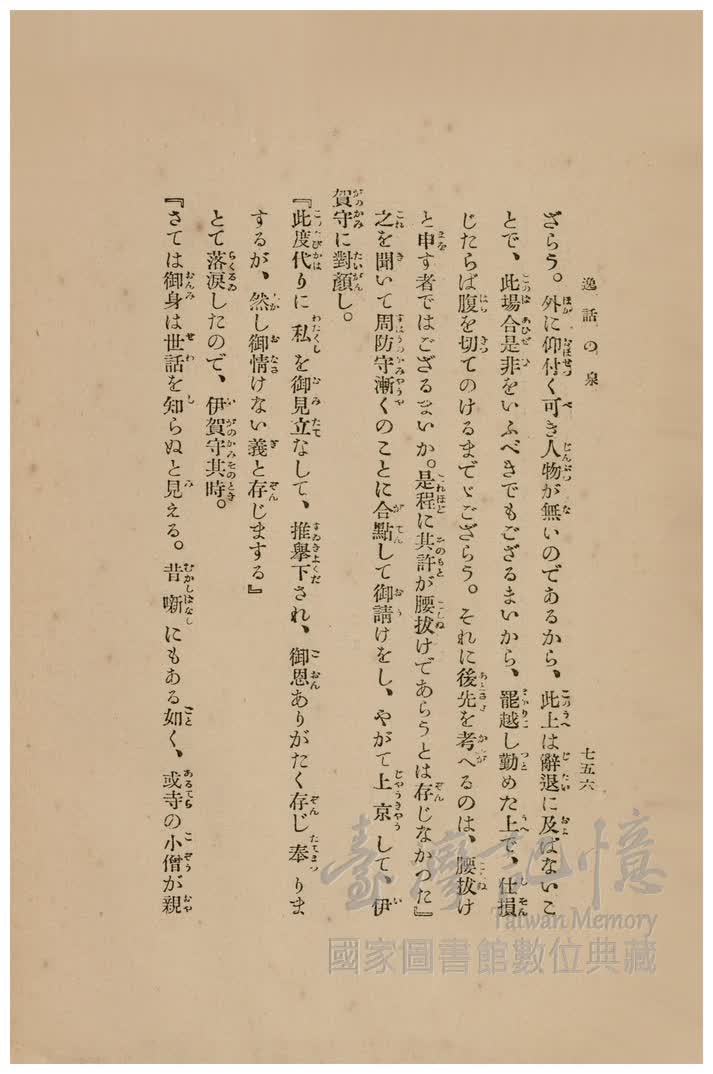 逸話の泉
七五六
ざらう。外に仰付く可き人物が無いのであるから、此上は辭退に及ばないこ
とで、此場合是非をいふべきでもござるまいから、罷越し勤めた上で、仕損
じたらば腹を切てのけるまでゞござらう。それに後先を考へるのは、腰拔け
と申す者ではござるまいか。是程に其許が腰拔けであらうとは存じなかつた』
之を聞いて周防守漸くのことに合點して御請けをし、やがて上京して、伊
賀守に對顏し。
『此度代りに私を御見立なして、推擧下され、御恩ありがたく存じ奉りま
するが、然し御情けない義と存じまする』
とて落淚したので、伊賀守其時。
『さては御身は世話を知らぬと見える。昔噺にもある如く、或寺の小僧が親
臺灣記憶
Taiwan Memory
國家圖書館數位典藏